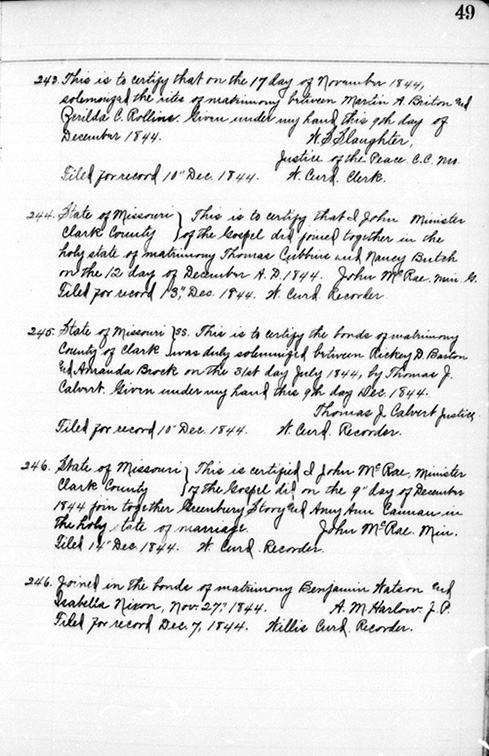 49
243. This is to certify that on the 17 day of November 1844,
solemnized the rites of matrimony between Martin A. Briton and
Zerilda C. Rollins. Given under my hand this 9th day of
December 1844. W. S. Slaughter,
Justice of the Peace. C.C. Mo.
Filed for record 10" Dec. 1844. W. Curd. Clerk.
244. State of Missouri } This is to certify that I John Minister
Clark County } of the Gospel did joined together in the
holy state of matrimony Thomas Cubbins and Nancy Butch
on the 12 day of December A.D. 1844. John McRae. Min. G.
Filed for record 13" Dec. 1844. W. Curd Recorder.
245. State of Missouri } ss. This is to certify the bonds of matrimony
County of Clark } was duly solemnized between Rickey D. Barton
and Amanda Brock on the 31st day July 1844, by Thomas J.
Calvert. Given under my hand this 9th day Dec. 1844.
Thomas J. Calvert Justice.
Filed for record 10" Dec. 1844. W. Curd. Recorder.
246. State of Missouri } This is certified I John McRae, Minister
Clark County } of the Gospel did on the 9" day of December
1844 join together Greenbury Story and Amy Ann in
the holy state of marriage. John McRae. Min.
Filed 14" Dec. 1844. W. Curd. Recorder.
246. Joined in the bonds of matrimony Benjamin Watson and
Isabella Nixon, Nov. 27," 1844. A. M. Harlow. J. P.
Filed for record Dec. 7, 1844. Willis Curd. Recorder.